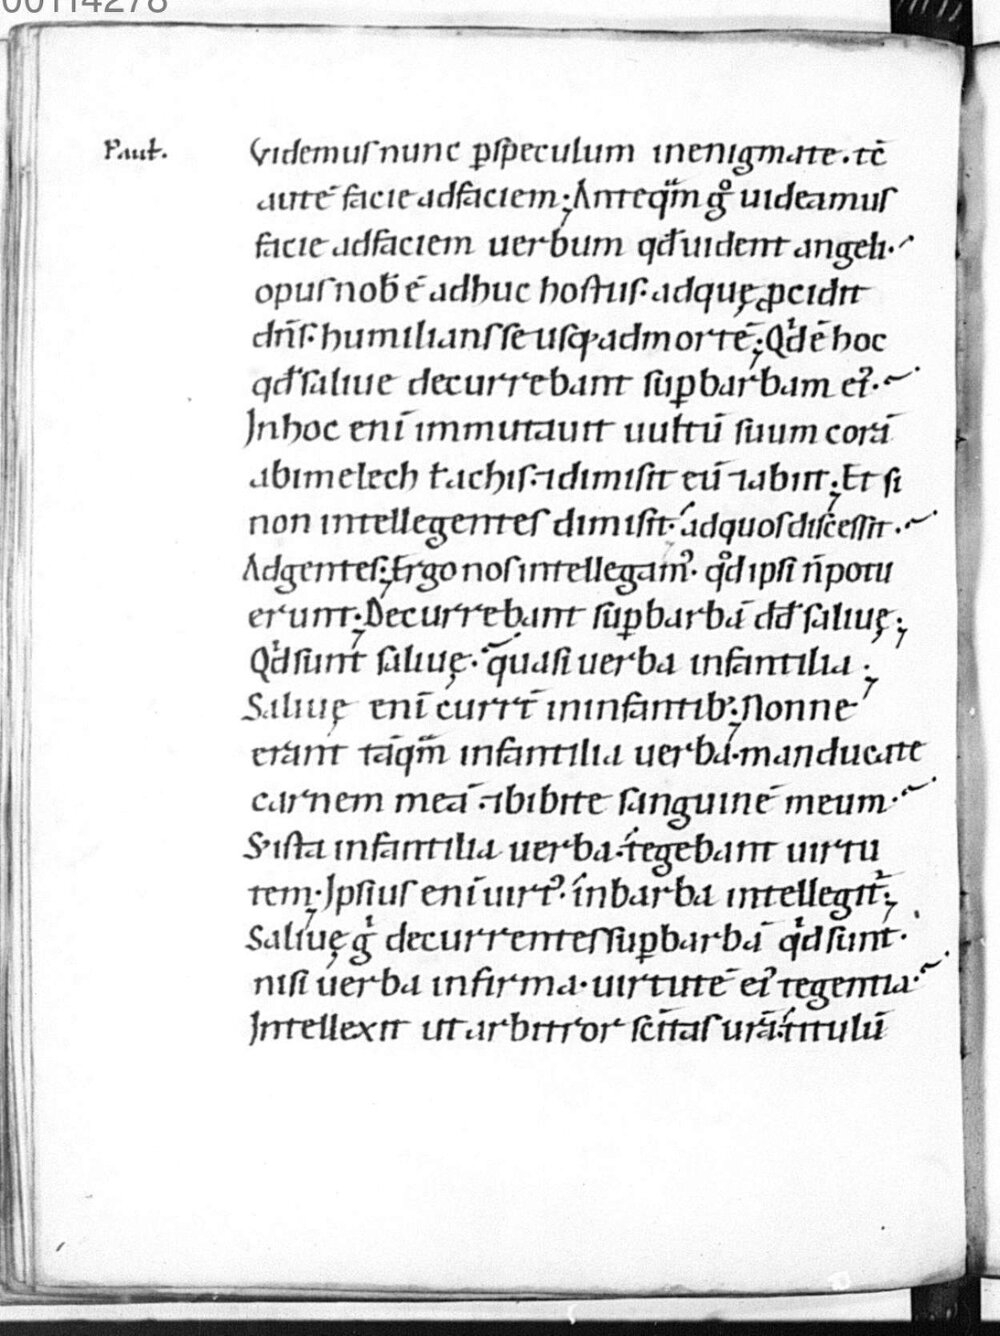 00114278
Paul.
Videmus nunc ꝑ speculum in enigmate. tc̄
autē facie ad faciem; Anteqͣm gͦ uideamus
facie ad faciem uerbum qđ uident angeli.
opus nob̄ ē adhuc hostiis. ad quę pcidit
dn̄s. humilians se usq; ad mortē; Qͥd ē hoc
qđ saliue decurrebant suꝑ barbam ei᾽.
In hoc enī immutauit uultū suum corā
abimelech ł achis. ⁊ dimisit eū ⁊ abiit; Et si
non intellegentes dimisit. ad quos discessit.
Ad gentes; Ergo nos intellegam᾽. qͦd ipsi n̄ potu
erunt; Decurrebant suꝑ barbā dđ saliuę;
Qͥd sunt saliuę. quasi uerba infantilia;
Saliuę enī curr̄t in infantib᾽; Nonne
erant tāqͣm infantilia uerba. manducate
carnem meā. ⁊ bibite sanguinē meum.
S; ista infantilia uerba. tegebant uirtu
tem; Ipsius enī uirt᾽. in barba intellegit᾽;
Saliuę gͥ decurrentes suꝑ barbā qͥd sunt.
nisi uerba infirma. uirtutē ei᾽ tegentia.
Intellexit ut arbitror sc̄itas ur̄a. titulū